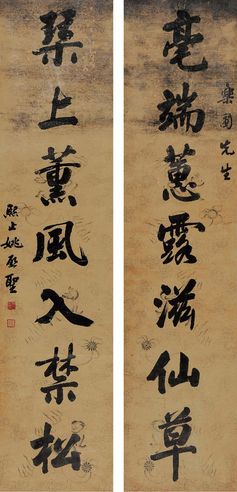 毫端蕙露滋仙草
樂圃先生
琴上薰風入禁松
熙止姚啟聖